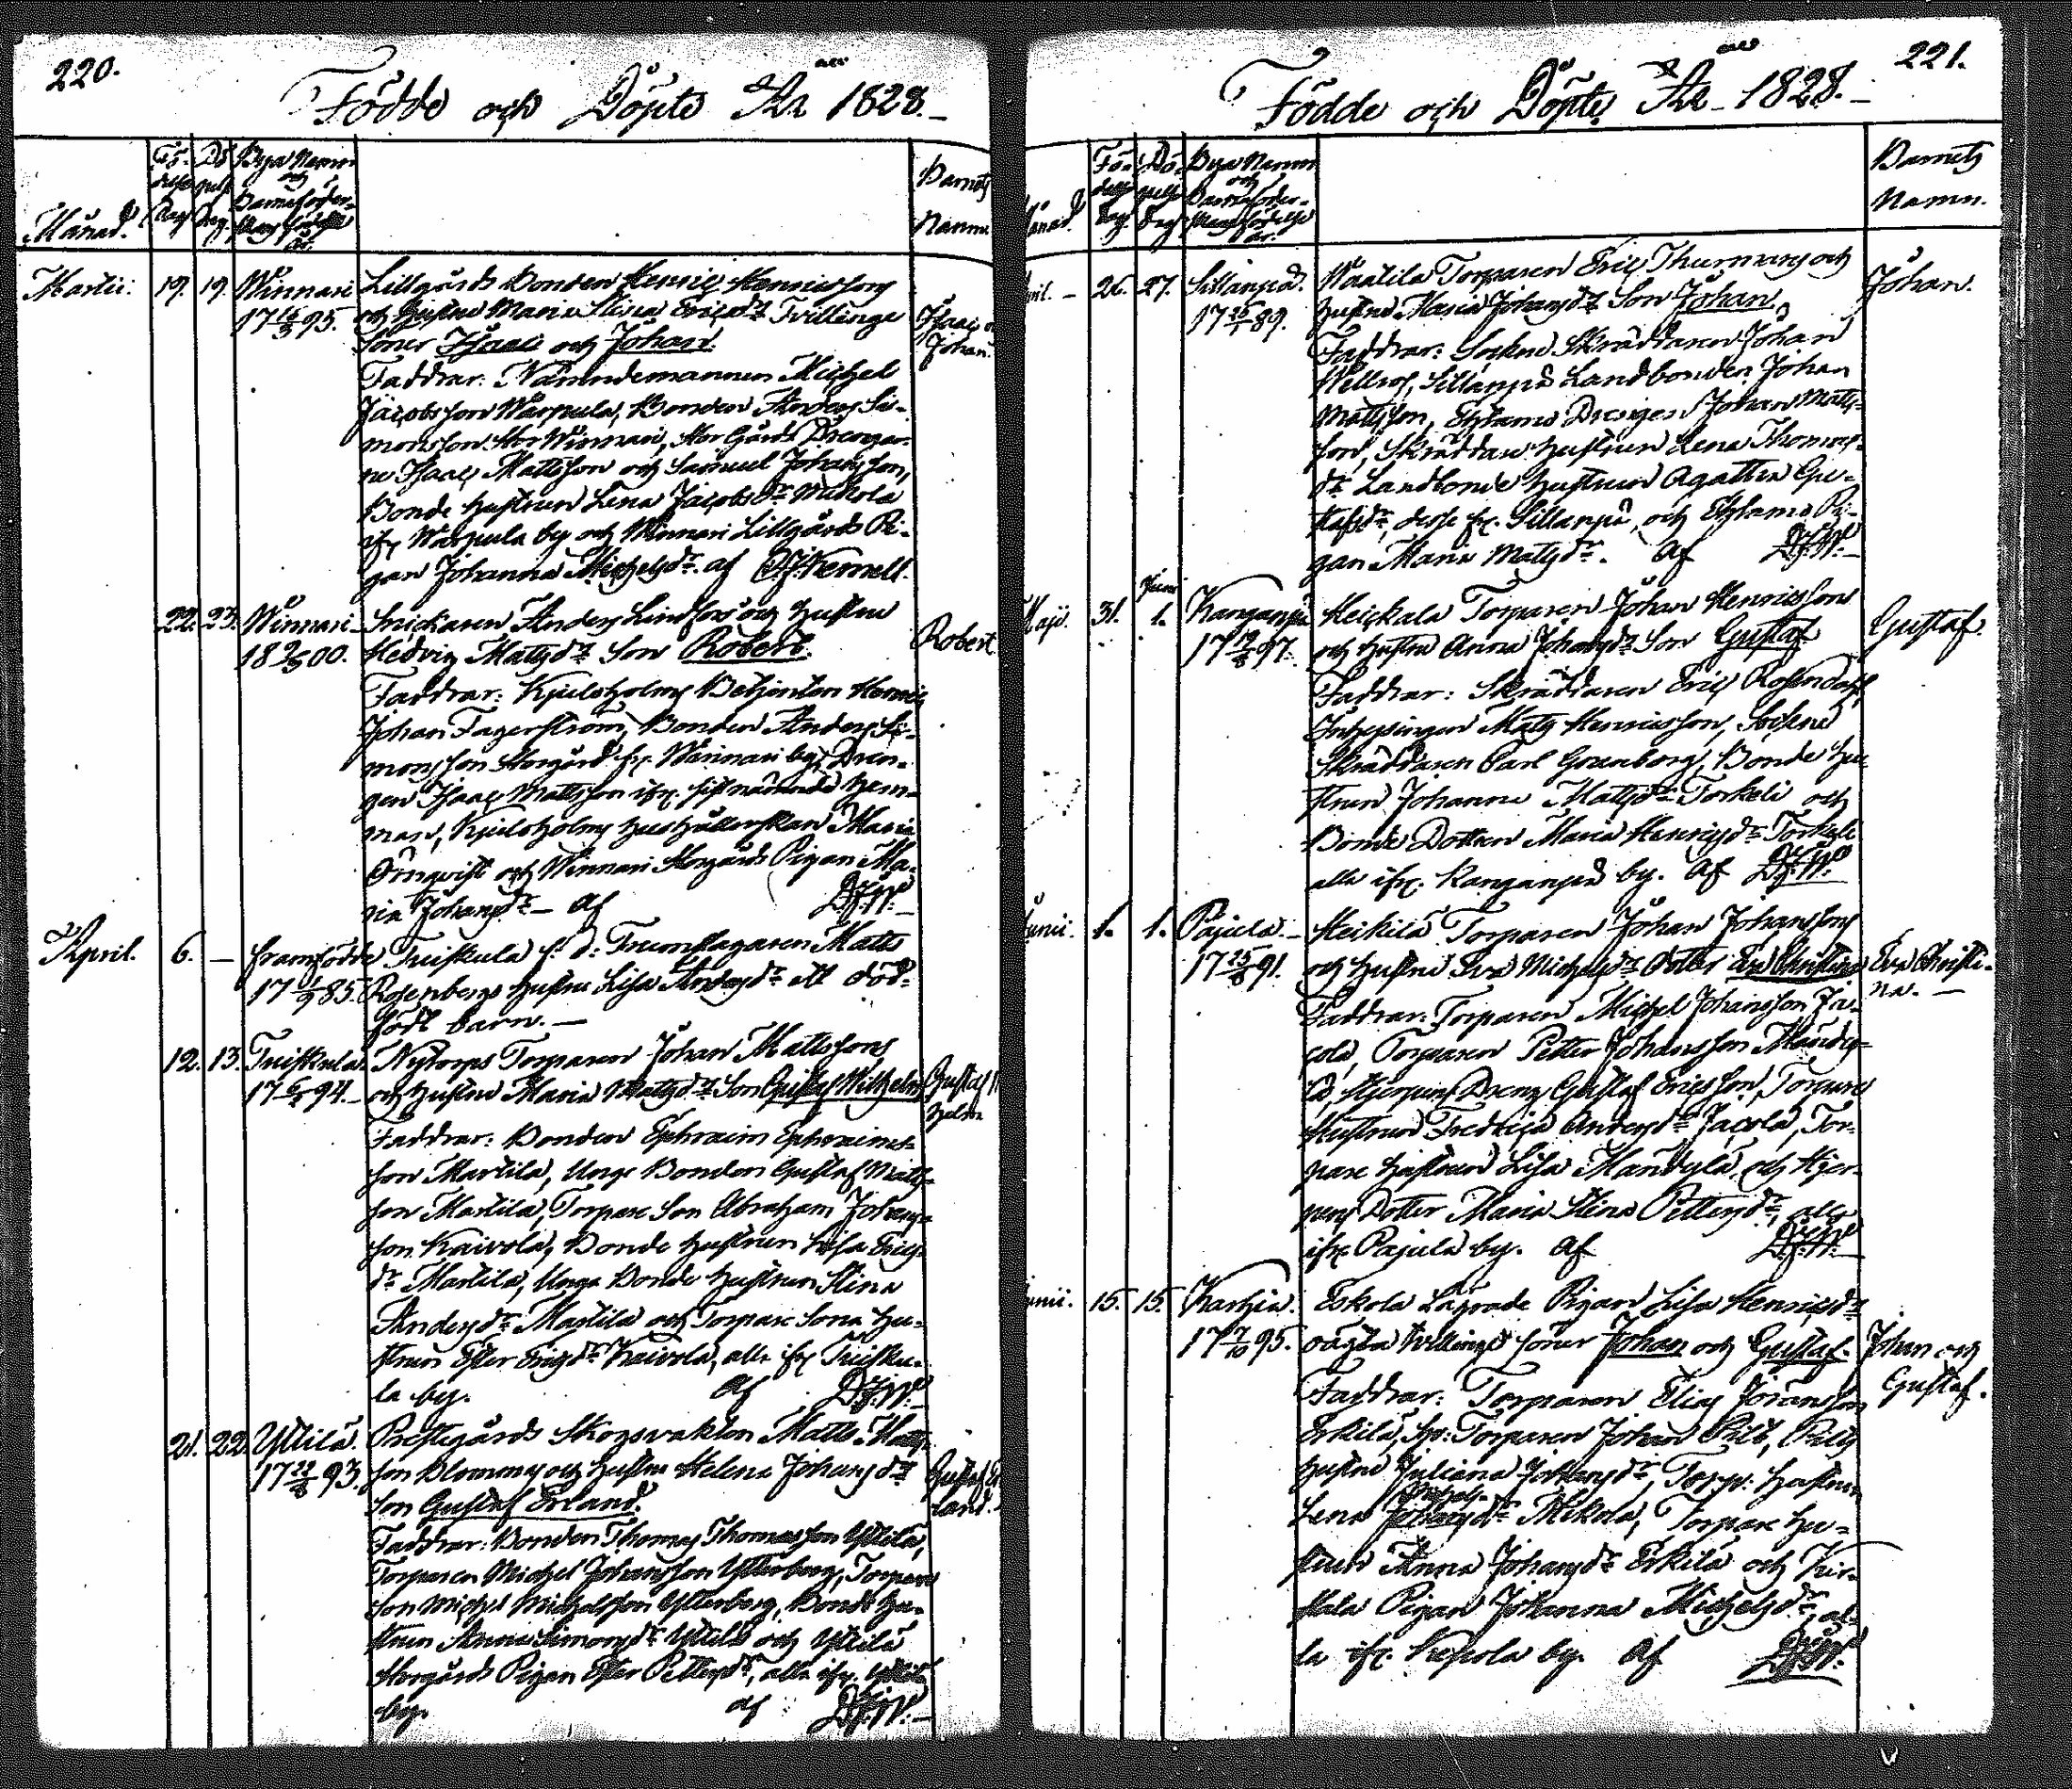 220.
Födde och Döpte År 1828.
Månad.
Fö-
delse
Dag
Dö
pelse
Dag.
Bya Namn
och
Barnaföder-
skans födelse
år.
Barnets
Namn.
Martii. 19. 19. Winnari Lillgårds Bonden Henric Henricssons
17 95. och Hustru Maria Stina Ericsdr Tvillinge
Söner Isaac och Johan. Isaac och
Johan.
Faddrar: Nämndemannen Michel
Jacobsson Warpula, Bonden Anders Si-
monsson Stor Winnari, Stor Gårds Drengar-
ne Isaac Mattsson och Samuel Johansson,
Bonde hustrun Lena Jacobsdr Mickola
ifr. Warpula by och Winnari Lillgårds Pi-
gan Johanna Michelsdr. af
22. 23. Winnari Snickaren Anders Lindfors och Hustru
18 00. Hedvig Matsdr Son Robert. Robert
Faddrar: Kjuloholms Betjenten Henric
Johan Fagerström, Bonden Anders Si-
monsson Storgård fr. Winnari by, Dren-
gen Isaac Mattsson ifr. sistnämnde hem-
man, Kjuloholms Hushållerskan Maria
Örnqvist och Winnari Storgårds Pigan Ma-
ria Johansdr. af
April. 6. — framfödde Tuiskula f. d. Trumslagaren Matts
17 85. Rosenbergs hustru Lisa Andersdr ett död-
född barn. —
12. 13. Tuiskula. Nytorps Torparen Johan Mattssons
17 94. och Hustru Maria Matsdr Son Gustaf Wilhelm. Gustaf Wil
helm
Faddrar: Bonden Ephraim Ephraims-
son Martila, Unge Bonden Gustaf Matts-
son Martila, Torpare Son Abraham Johans-
son Kaivola, Bonde hustrun Lisa Erics-
dr Martila, Unga Bonde hustrun Stina
Andersdr Martila och Torpare Sons hu-
strun Ester Ericsdr Kaivola, alle ifr. Tuisku-
la by. af
21. 22. Yttilä. Prestegårds Skogsvakten Matts Matts-
17 93. son Blommas och hustru Helena Johansdr
Son Gustaf Erland. Gustaf Er
land.
Faddrar: Bonden Thomas Thomasson Yttilä,
Torparen Michel Johansson Ytterberg, Torpare
Son Michel Michelsson Ytterberg, Bonde hu-
strun Anna Simonsdr Yttilä och Yttilä
Storgårds Pigan Ester Pettersdr, alla ifr. Yttilä
by. af
221.
Födde och Döpte År 1828.
Månad.
Fö-
delse
dag.
Dö-
pelse
Dag
Bya Namn
och
Barnaföder-
skans födelse
år.
Barnets
Namn.
April. — 26. 27. Sillanpä. Waalila Torparen Eric Thurmans och
17 89. hustru Maria Johansdr Son Johan. Johan.
Faddrar: Sockne Skräddaren Johan
Sillanpä Landbonden Johan
Mattsson, Drengen Johan Matts-
son, Skräddare hustrun Lena Thomas-
dr Landbonde hustrun Agatha Gu-
stafsdr, desse fr. Sillanpä, och Pi-
gan Maria Matsdr. af
Maji. 31. Junii 1. Kanganpä Heickala Torparen Johan Henricssons
17 97. och hustru Anna Johansdr Son Gustaf Gustaf.
Faddrar: Skräddaren Eric Rosendahl
Inhysingen Mats Henricsson, Sockne
Skräddaren Carl Granberg, Bonde hu-
strun Johanna Matsdr Torkeli och
Bonde Dottren Maria Henricsdr Torkeli
alla ifr. Kanganpä by. af
Junii. 1. 1. Pajula. Heikilä Torparen Johan Johanssons
17 91. och hustru Eva Michelsdr Dotter Eva Christina Eva Christi-
na. —
Faddrar: Torparen Michel Johansson Ja-
cola, Torparen Petter Johansson Mandy-
lä, Hjerpens Dreng Gustaf Ericsson, Torpare
Hustrun Fredrica Andersdr Jacola, Tor-
pare hustrun Lisa Mandylä och Hjer-
pens Dotter Maria Stina Pettersdr, alla
ifr. Pajula by. af
Junii. 15. 15. Karhia. Eskola Lägrade Pigan Lisa Henricsdr
17 95. oägta tvillinge söner Johan och Gustaf. Johan och
Gustaf.
Faddrar: Torparen Elias Johansson
Erkilä, Torparen Johan
hustru Juliana Johansdr, Torp. hustrun
Michels-
Lena Johansdr Mikola, Torpare hu-
strun Anna Johansdr Erkilä och
Pigan Johanna Michelsdr, al-
la ifr. Kepola by. af